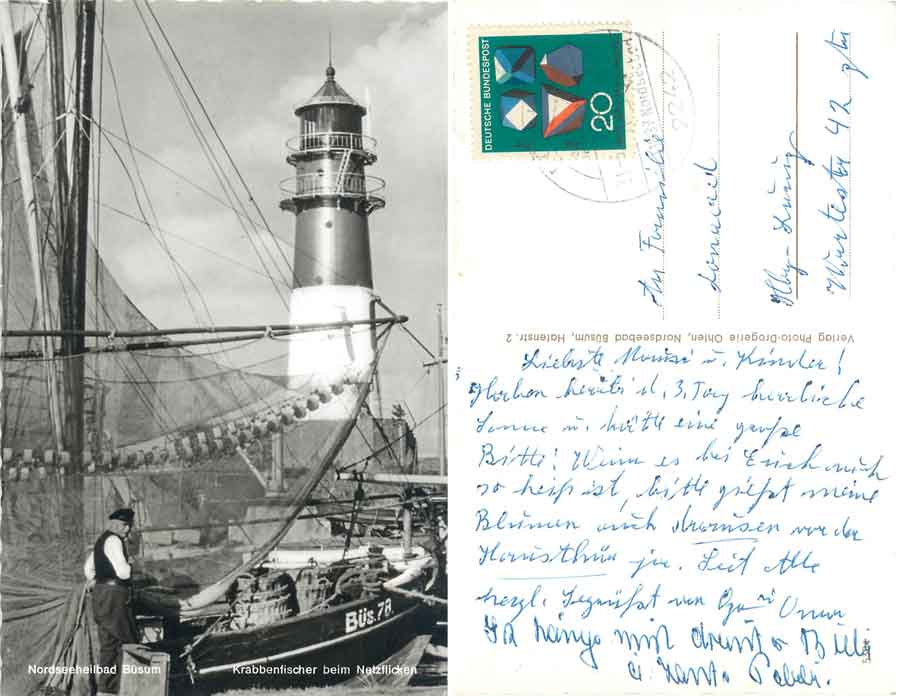 Nordseeheilbad Büsum
Krabbenfischer beim Netzflicken
Büs.78.
DEUTSCHE BUNDESPOST
20
2242
An Familie
Hbg-
42
Verlag Photo-Drogerie Ohlen, Nordseebad Büsum, Hafenstr. 2
Liebste Mausi u. Kinder!
Haben bereits d. 3. Tag herrliche
Sonne u. hätte eine große
Bitte! Wenn es bei Euch auch
so heiß ist, bitte gießt meine
Blumen auch draussen vor der
Hausthür ja. Seid Alle
herzl. gegrüßt von
u. Tante